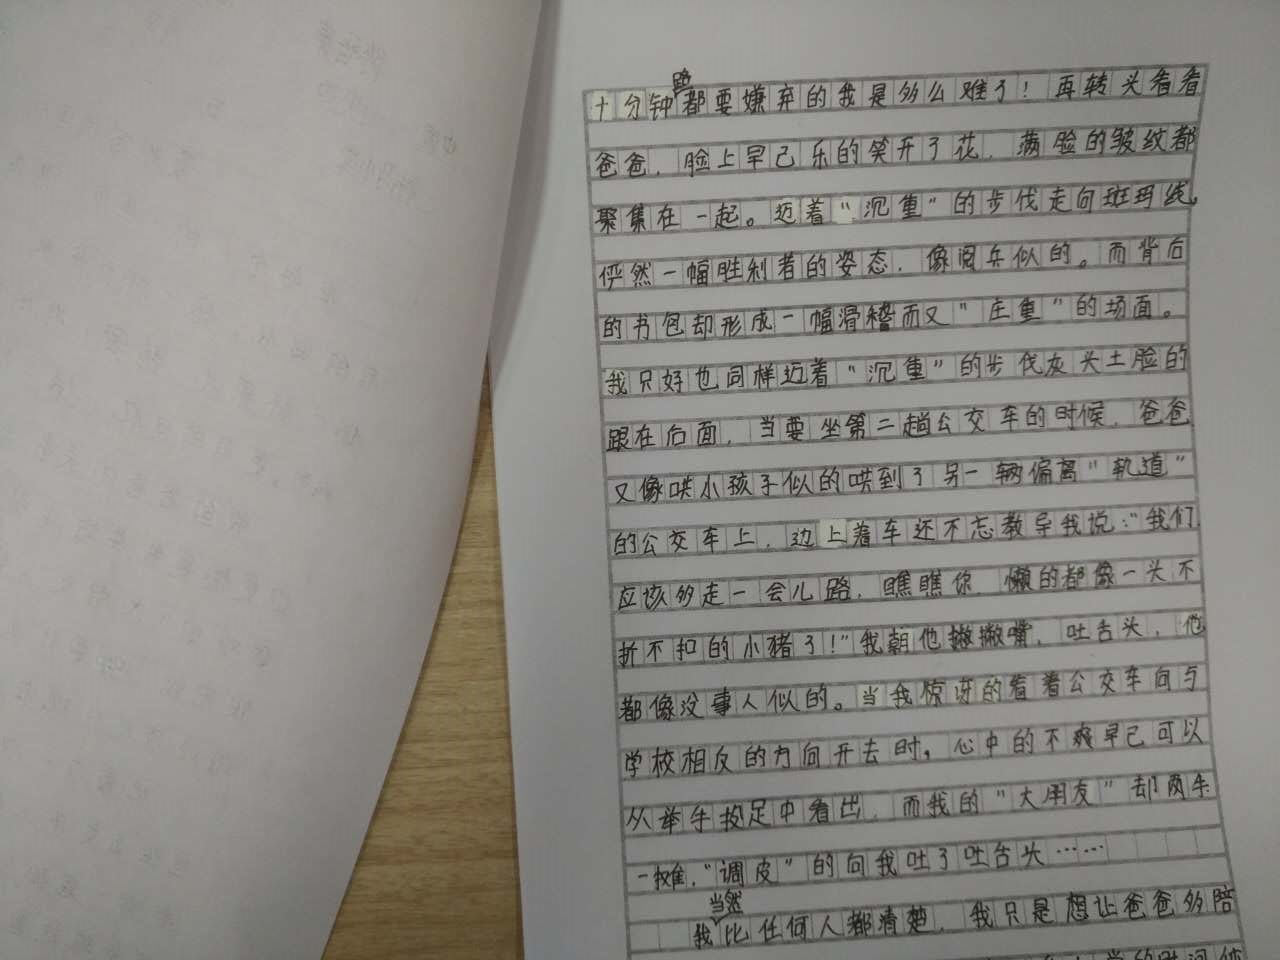 十分钟路都要嫌弃的我是多么难了！再转头看看
爸爸，脸上早已乐的笑开了花，满脸的皱纹都
聚集在一起。迈着“沉重”的步伐走向斑玛线。
俨然一幅胜利者的姿态，像阅兵似的。而背后
的书包却形成一幅滑稽而又“庄重”的场面。
我只好也同样迈着“沉重”的步伐灰头土脸的
跟在后面，当要坐第二趟公交车的时候，爸爸
又像哄小孩子似的哄到了另一辆偏离“轨道”
的公交车上，边上着车还不忘教导我说：“我们
应该多走一会儿路，瞧瞧你，懒的都像一头不
折不扣的小猪了！”我朝他撇撇嘴，吐舌头，他
都像没事人似的。当我惊讶的看着公交车向与
学校相反的方向开去时，心中的不爽早已可以
从举手投足中看出，而我的“大朋友”却两手
一摊，“调皮”的向我吐了吐舌头……
我当然比任何人都清楚，我只是想让爸爸多陪